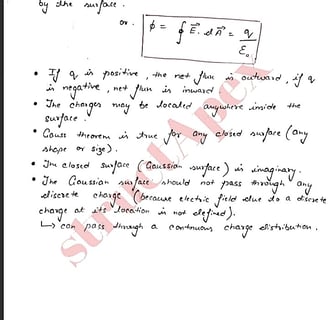 by the surface.
or. ϕ = ∮ E⃗ . dA⃗ = q/ε₀
• If q is positive, the net flux is outward, if q
is negative, net flux is inward
• The charges may be located anywhere inside the
surface.
• Gauss theorem is true for any closed surface (any
shape or size).
• The closed surface (Gaussian surface) is imaginary.
• The Gaussian surface should not pass through any
discrete charge (because electric field due to a discrete
charge at its location is not defined).
↳ can pass through a continuous charge distribution.